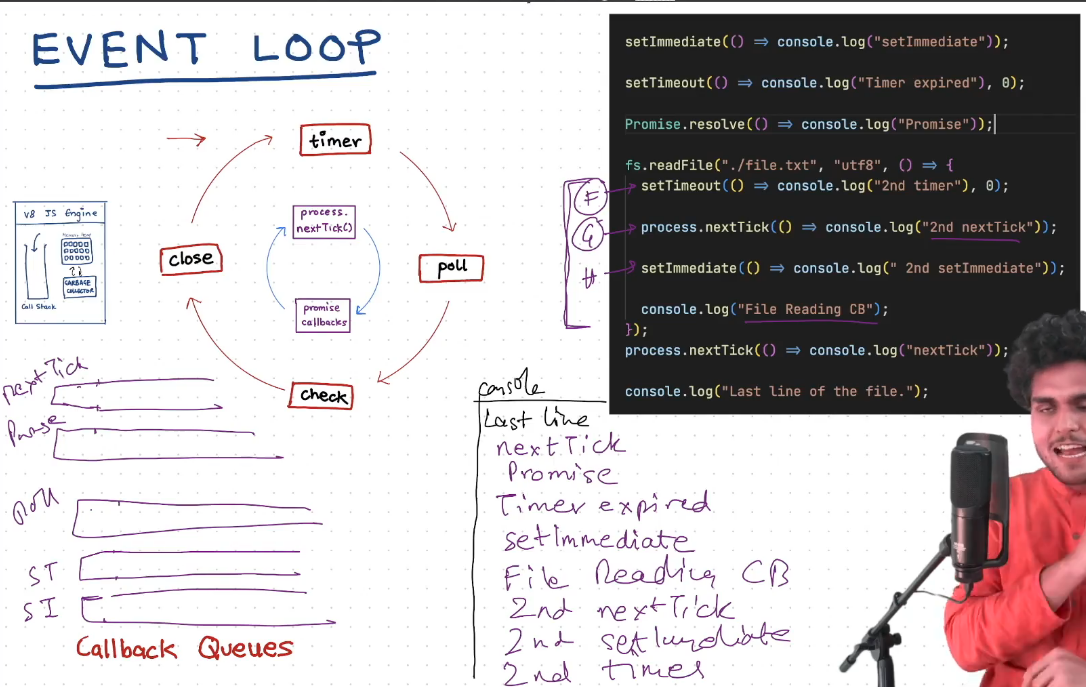 EVENT LOOP
timer
process.
nextTick()
close
poll
promise
callbacks
check
V8 JS Engine
Memory Heap
GARBAGE
COLLECTOR
Call Stack
nextTick
Poll
ST
SI
Callback Queues
setImmediate(() => console.log("setImmediate"));
setTimeout(() => console.log("Timer expired"), 0);
Promise.resolve(() => console.log("Promise"));
fs.readFile("./file.txt", "utf8", () => {
F
setTimeout(() => console.log("2nd timer"), 0);
G
process.nextTick(() => console.log("2nd nextTick"));
H
setImmediate(() => console.log(" 2nd setImmediate"));
console.log("File Reading CB");
});
process.nextTick(() => console.log("nextTick"));
console.log("Last line of the file.");
console
Last line
nextTick
Promise
Timer expired
setImmediate
File Reading CB
2nd nextTick
2nd
2nd